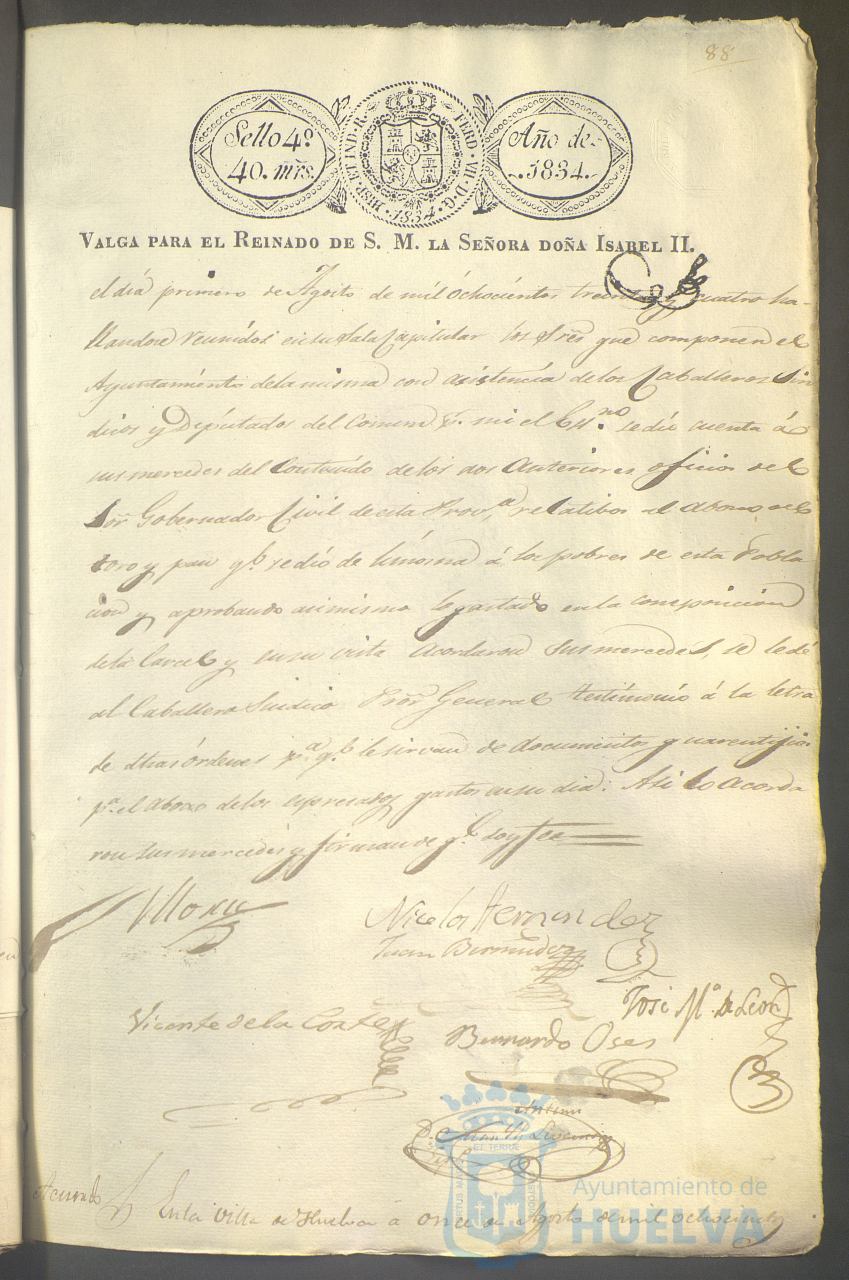 88
Sello 4º
40. mrs.
HISP. ET IND. R. FERD. VII D. G. 1834
Año de
1834.
VALGA PARA EL REINADO DE S. M. LA SEÑORA DOÑA ISABEL II.
el día primero de Agosto de mil ochocientos treinta y cuatro ha-
llandose reunidos en su Sala Capitular los Sres que componen el
Ayuntamiento de la misma con asistencia de los Caballeros Sin
dicos y Diputados del Comun p.r mi el Ess.no se dió cuenta á
sus mercedes del Contenido de los dos anteriores oficios del
Sor Gobernador Civil de esta Prov.a relativos al abono del
toro y pan q.e se dió de limosna á los pobres de esta Pobla
cion y aprobando asimismo lo gastado en la composicion
de la Carcel y en su vista acordaron sus mercedes, se le dé
al Caballero Sindico Pror General testimonio á la letra
de dhas órdenes p.a q.e le sirvan de documentos
p.a el abono de los espresados gastos en su dia: Asi lo acorda
ron sus mercedes y firman de q.e doy fee
Nicolas Hernandez
Juan Bermudez
José M.a de Leon
Vicente de la Corte
Bernardo Oses
Ante mi
Acuerdo
En la Villa de Huelva á once de Agosto de mil ochocientos
Ayuntamiento de
HUELVA